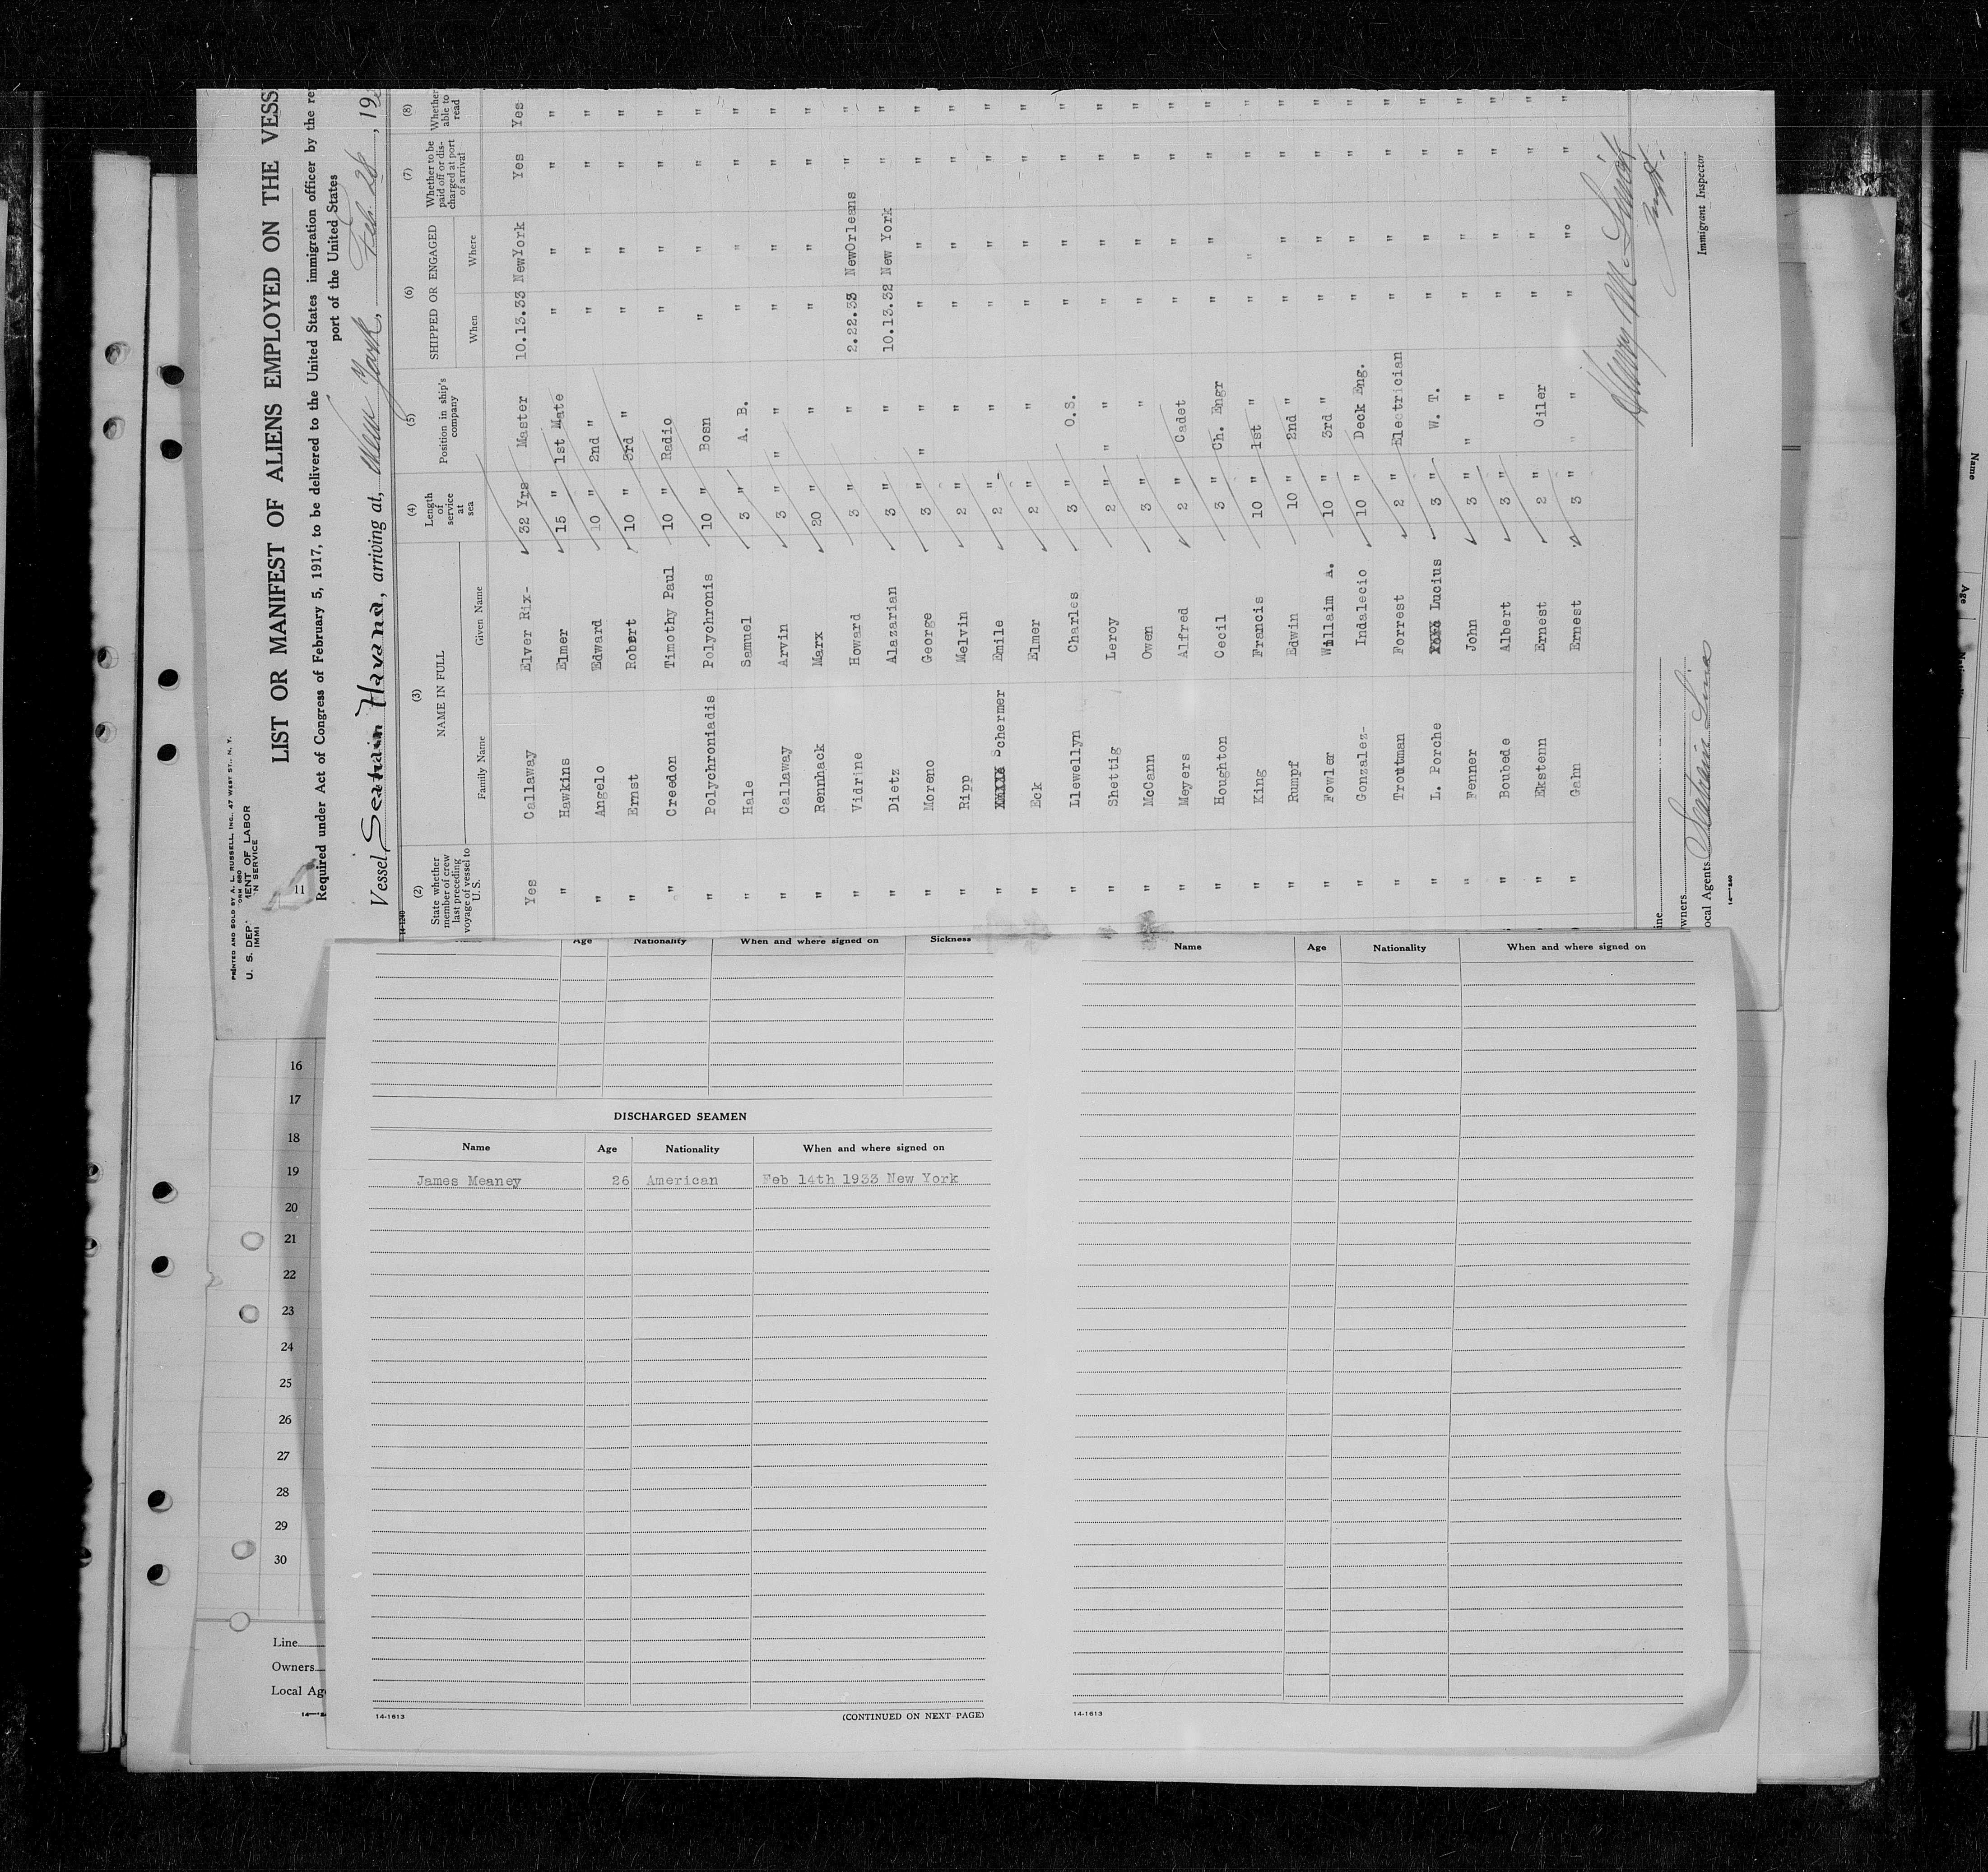 PRINTED AND SOLD BY A. L. RUSSELL, INC., 47 WEST ST., N. Y.
ORM 680
U. S. DEP MENT OF LABOR
IMMI N SERVICE
11
LIST OR MANIFEST OF ALIENS EMPLOYED ON THE VESS
Required under Act of Congress of February 5, 1917, to be delivered to the United States immigration officer by the re
port of the United States
Vessel Seatrain Havana, arriving at, New York, Feb. 28, 19
14-1240
(2) (3) (4) (5) (6) (7) (8)
State whether member of crew last preceding voyage of vessel to U. S. NAME IN FULL Family Name Given Name Length of service at sea Position in ship's company SHIPPED OR ENGAGED When Where Whether to be paid off or discharged at port of arrival Whether able to read
Yes Callaway Elver Rix- 32 Yrs Master 10.13.33 NewYork Yes Yes
" Hawkins Elmer 15 " 1st Mate " " " "
" Angelo Edward 10 " 2nd " " " " "
" Ernst Robert 10 " 3rd " " " " "
" Creedon Timothy Paul 10 " Radio " " " "
" Polychroniadis Polychronis 10 " Bosn " " " "
" Hale Samuel 3 " A. B. " " " "
" Callaway Arvin 3 " " " " " " "
" Rennhack Marx 20 " " " " " "
" Vidrine Howard 3 " " 2.22.33 NewOrleans " "
" Dietz Alazarian 3 " " 10.13.32 New York " "
" Moreno George 3 " " " " " " "
" Ripp Melvin 2 " " " " " "
" Schermer Emile 2 " - " " " " "
" Eck Elmer 2 " " " " " "
" Llewellyn Charles 3 " O.S. " " " "
" Shettig Leroy 2 " - " " " " " "
" McCann Owen 3 " " " " " "
" Meyers Alfred 2 " Cadet " " " "
" Houghton Cecil 3 " Ch. Engr " " " "
" King Francis 10 " 1st " " " " "
" Rumpf Edwin 10 " 2nd " " " " "
" Fowler Willaim A. 10 " 3rd " " " " "
" Gonzalez- Indalecio 10 " Deck Eng. " " " "
" Troutman Forrest 2 " Electrician " " " "
" L. Porche Lucius 3 " - W. T. " " " "
" Fenner John 3 " " " " " " "
" Boubede Albert 3 " " " " " "
" Ekstenn Ernest 2 " Oiler " " " "
" Gahn Ernest 3 " " " " " " "
Immigrant Inspector
ine
wners
ocal Agents Seatrain Lines
14—1240
Age Nationality When and where signed on Sickness
DISCHARGED SEAMEN
Name Age Nationality When and where signed on
James Meaney 26 American Feb 14th 1933 New York
14-1613
(CONTINUED ON NEXT PAGE)
Name Age Nationality When and where signed on
14-1613
16
17
18
19
20
21
22
23
24
25
26
27
28
29
30
Line
Owners
Local Age
Name
Age